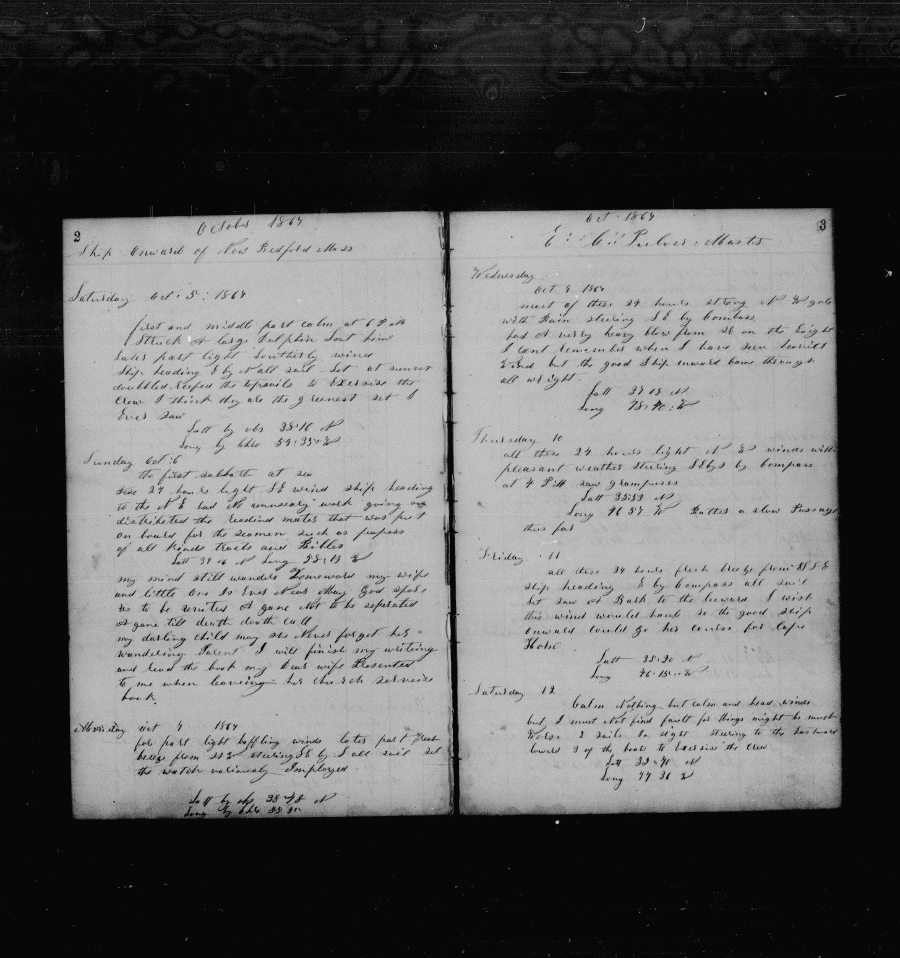 2
October 1867
Ship Onward of New Bedford Mass
Saturday Oct. 5: 1867
first and middle part calm at 6 P M
Struck A large Dolphin Lost him
Later part light Southerly wind
Ship heading E by N all sail Set at sunset
doubbled reefed the topsails to Exercise the
Crew I think they are the greenest set I
Ever saw
Latt by obs 38:16 N
Long by Chro
Sunday Oct: 6
the first sabbath at sea
these 24 hours light S E wind ship heading
to the N E had No unnessary work going on
distributed the readind matter that was put
on board for the seamen such as papers
of all kinds tracts and Bibles
Latt N Long W
my mind still wanders Homeward my wife
and little One Is Ever Near May God spare
us to be united A gane Not to be seperated
A gane till death call
my darling child may she Never forget her
wandering Parent I will finish my writing
and read the book my Dear wife Presented
to me when leaveing her church serveice
book
Monday Oct 7 1867
for part light baffling winds later part fresh
breeze from steering S E by all sail set
the watch variously Imployed
Latt by obs 38-48 N
Long by Chro
3
Oct. 1867
Pulver. Master
Wednesday
Oct 9 1867
most of these 24 hours strong N W gale
with Rain steering S E by Compass
had A verry heavy blow from on the height
I cant remember when I have seen heavier
Wind but the good Ship onward come through
all wright.
Latt 37 03 N
Long W
Thursday 10
all these 24 hours light N E winds with
pleasant weather steering by Compass
at 4 P M saw grampuses
Latt N
Long W Rather a slow Passage
thus far
Friday 11
all these 24 hours fresh breeze from S E
ship heading E by Compass all sail
Set saw A Bark to the leeward I wish
this wind would haul so the good ship
onward could go her course for Cape
Horn
Latt 35:20 N
Long W
Saturday 12
Calm Nothing but calm and head winds
but I must Not find fault for things might be much
Worse 2 sails In sight steering to the Eastward
lowerd 3 of the boats to Exersise the Crew
Latt N
Long W